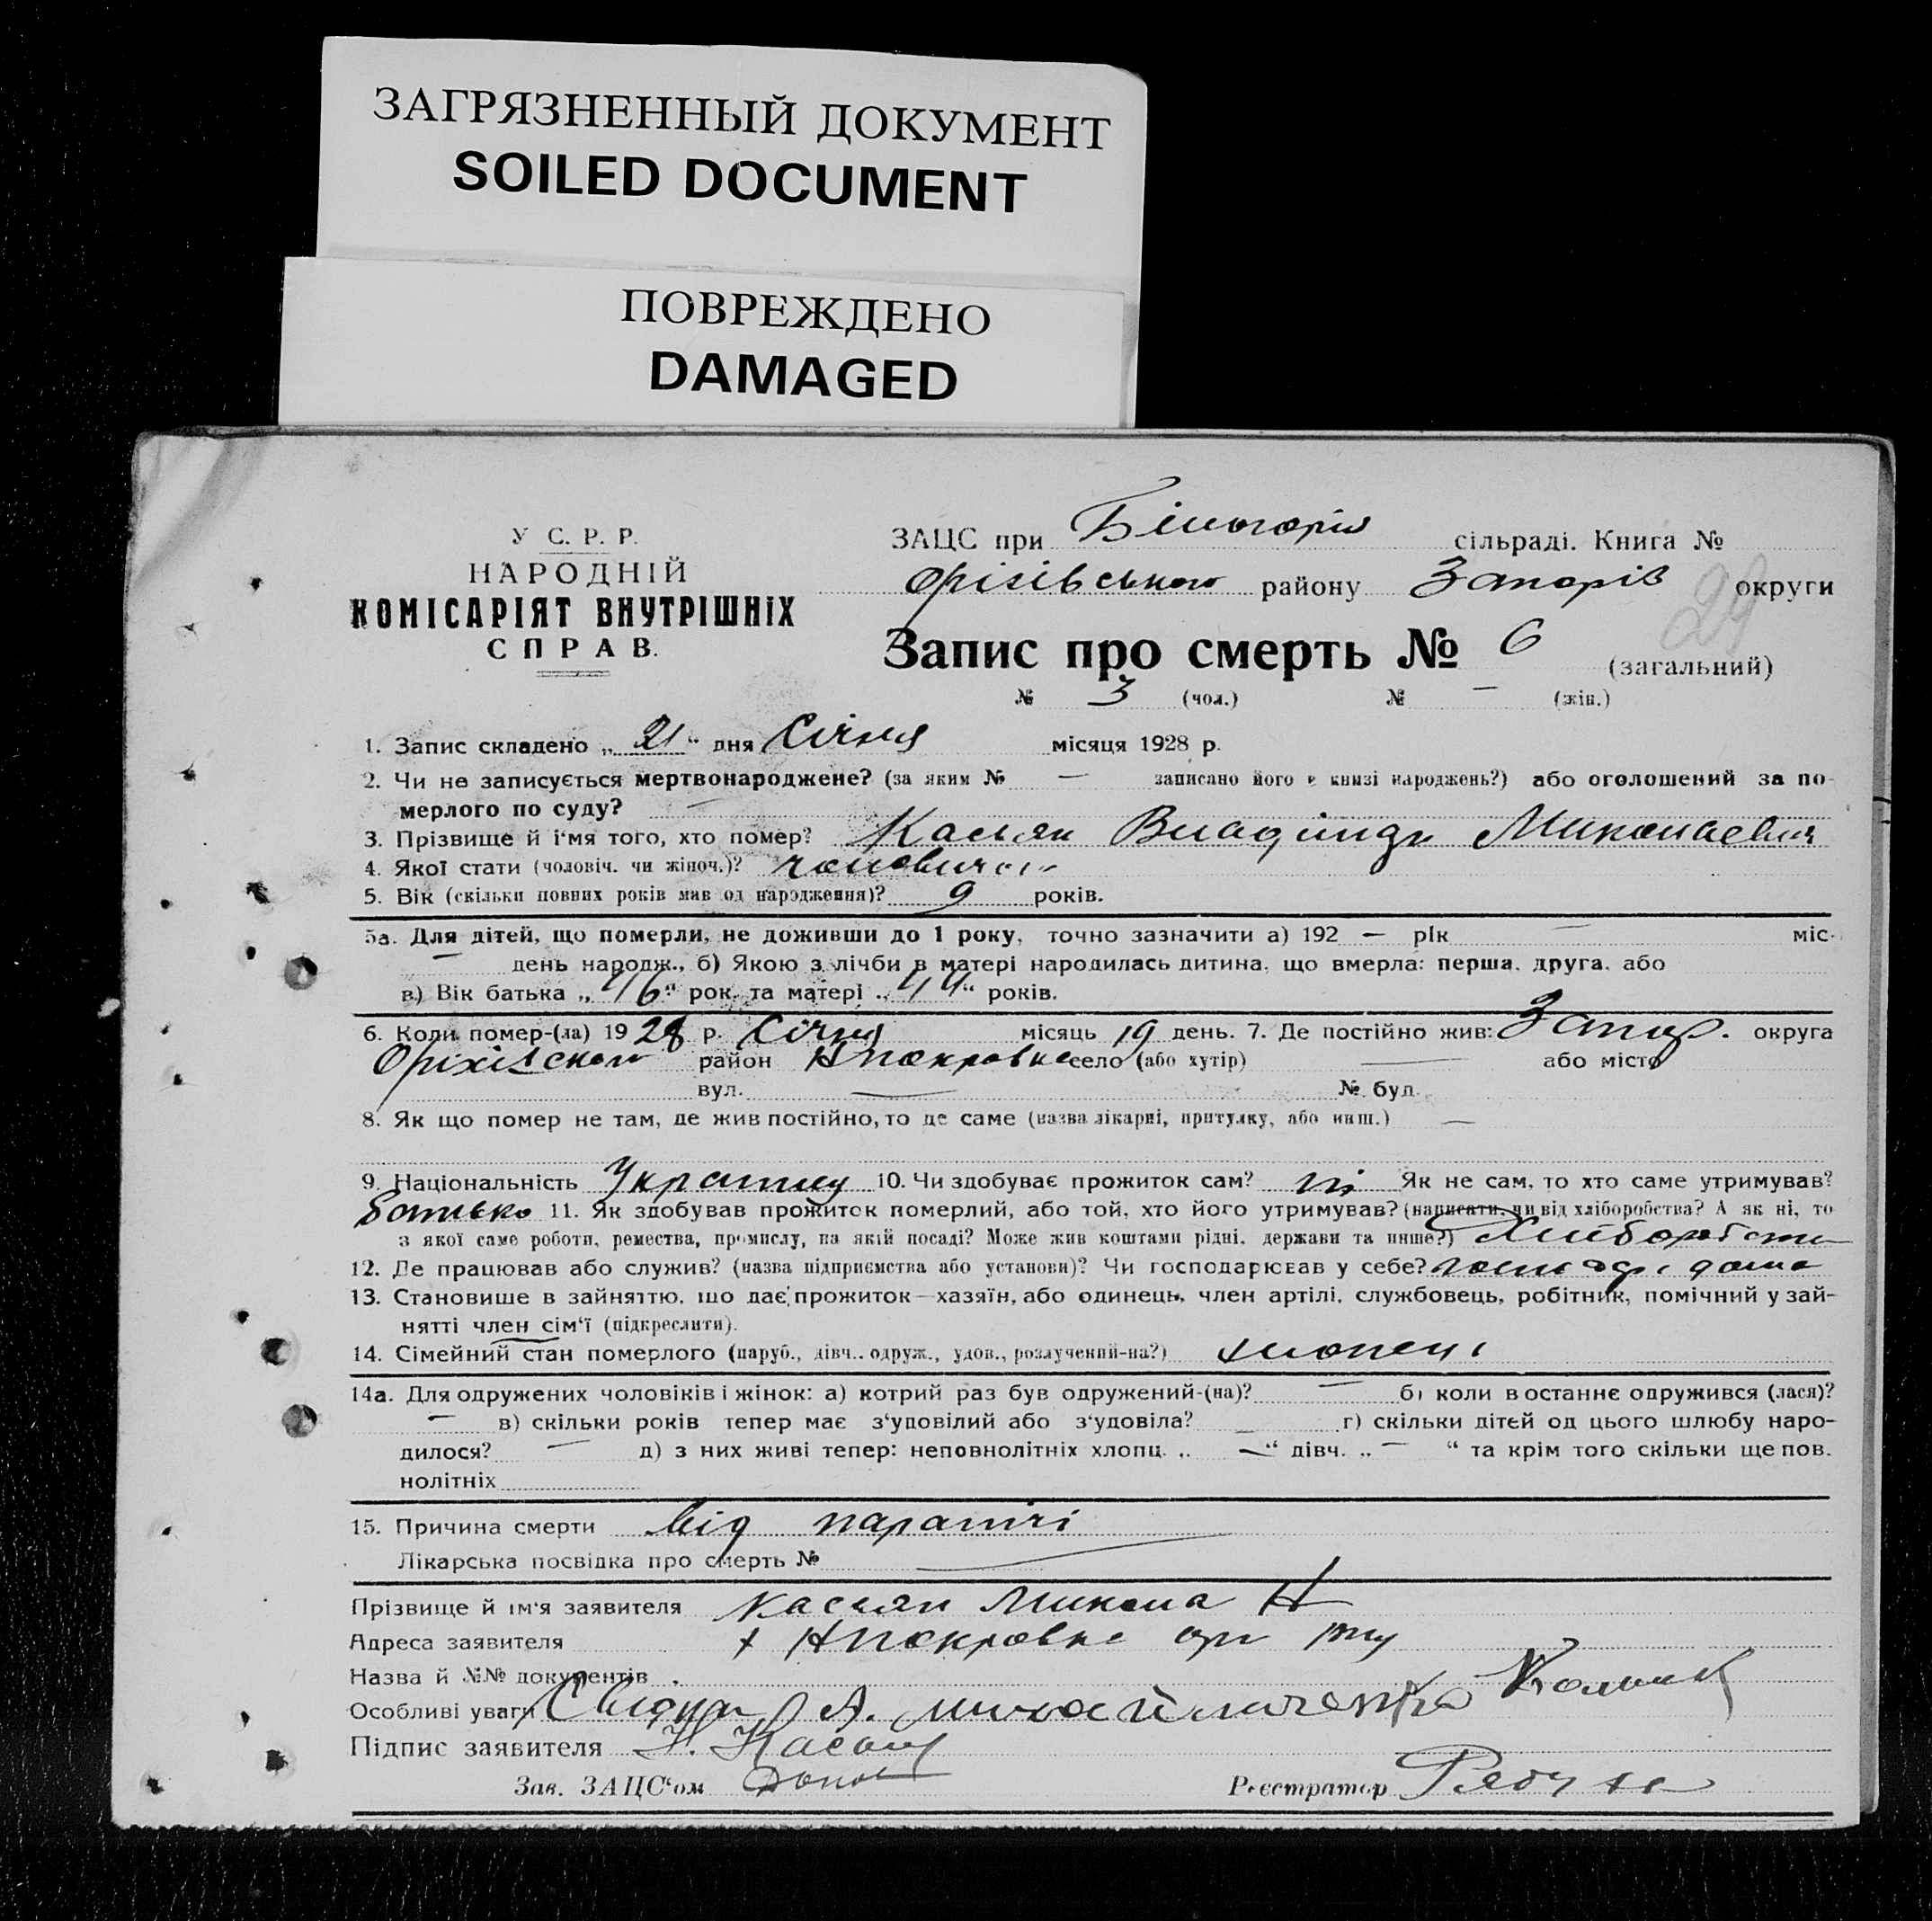 ЗАГРЯЗНЕННЫЙ ДОКУМЕНТ
SOILED DOCUMENT
ПОВРЕЖДЕНО
DAMAGED
У С. Р. Р.
НАРОДНІЙ
КОМІСАРІЯТ ВНУТРІШНІХ
СПРАВ.
ЗАЦС при Білогорія сільраді. Книга №
Оріхівського району Запорів округи
29
Запис про смерть № 6 (загальний)
№ 3 (чол.) № — (жін.)
1. Запис складено „21“ дня Січня місяця 1928 р.
2. Чи не записується мертвонароджене? (за яким № — записано його в книзі народжень?) або оголошений за по-
мерлого по суду? —
3. Прізвище й ім'я того, хто помер? Касьян Владімир Миколаевич
4. Якої стати (чоловіч. чи жіноч.)?
5. Вік (скільки повних років мав од народження)? 9 років.
5а. Для дітей, що померли, не доживши до 1 року, точно зазначити а) 192 — рік — міс.
— день народж., б) Якою з лічби в матері народилась дитина, що вмерла: перша, друга, або
в) Вік батька „46“ рок. та матері „44“ років.
6. Коли помер-(ла) 1928 р. Січня місяць 19 день. 7. Де постійно жив: Запор. округа
Оріхівском район Нпокровка село (або хутір) — або місто
вул. — № буд.
8. Як що помер не там, де жив постійно, то де саме (назва лікарні, притулку, або инш.) —
9. Національність 10. Чи здобуває прожиток сам? ні Як не сам, то хто саме утримував?
батько 11. Як здобував прожиток померлий, або той, хто його утримував? (написати, чи від хліборобства? А як ні, то
з якої саме роботи, ремества, промислу, на якій посаді? Може жив коштами рідні, держави та инше?)
12. Де працював або служив? (назва підприємства або установи)? Чи господарював у себе? дома
13. Становище в зайняттю, що дає прожиток—хазяїн, або одинець, член артілі, службовець, робітник, помічний у зай-
нятті член сім'ї (підкреслити).
14. Сімейний стан померлого (паруб., дівч., одруж., удов., розлучений-на?) хлопець
14а. Для одружених чоловіків і жінок: а) котрий раз був одружений-(на)? — б) коли востаннє одружився (лася)?
— в) скільки років тепер має з'удовілий або з'удовіла? — г) скільки дітей од цього шлюбу наро-
дилося? — д) з них живі тепер: неповнолітніх хлопц. „—“ дівч. „—“ та крім того скільки ще пов.
нолітніх
15. Причина смерти від паралічі
Лікарська посвідка про смерть № —
Прізвище й ім'я заявителя Касьян Микола Н
Адреса заявителя х Нпокровка
Назва й №№ документів
Особливі уваги А.
Підпис заявителя Н. Касьян
Зав. ЗАЦС'ом
Реєстратор